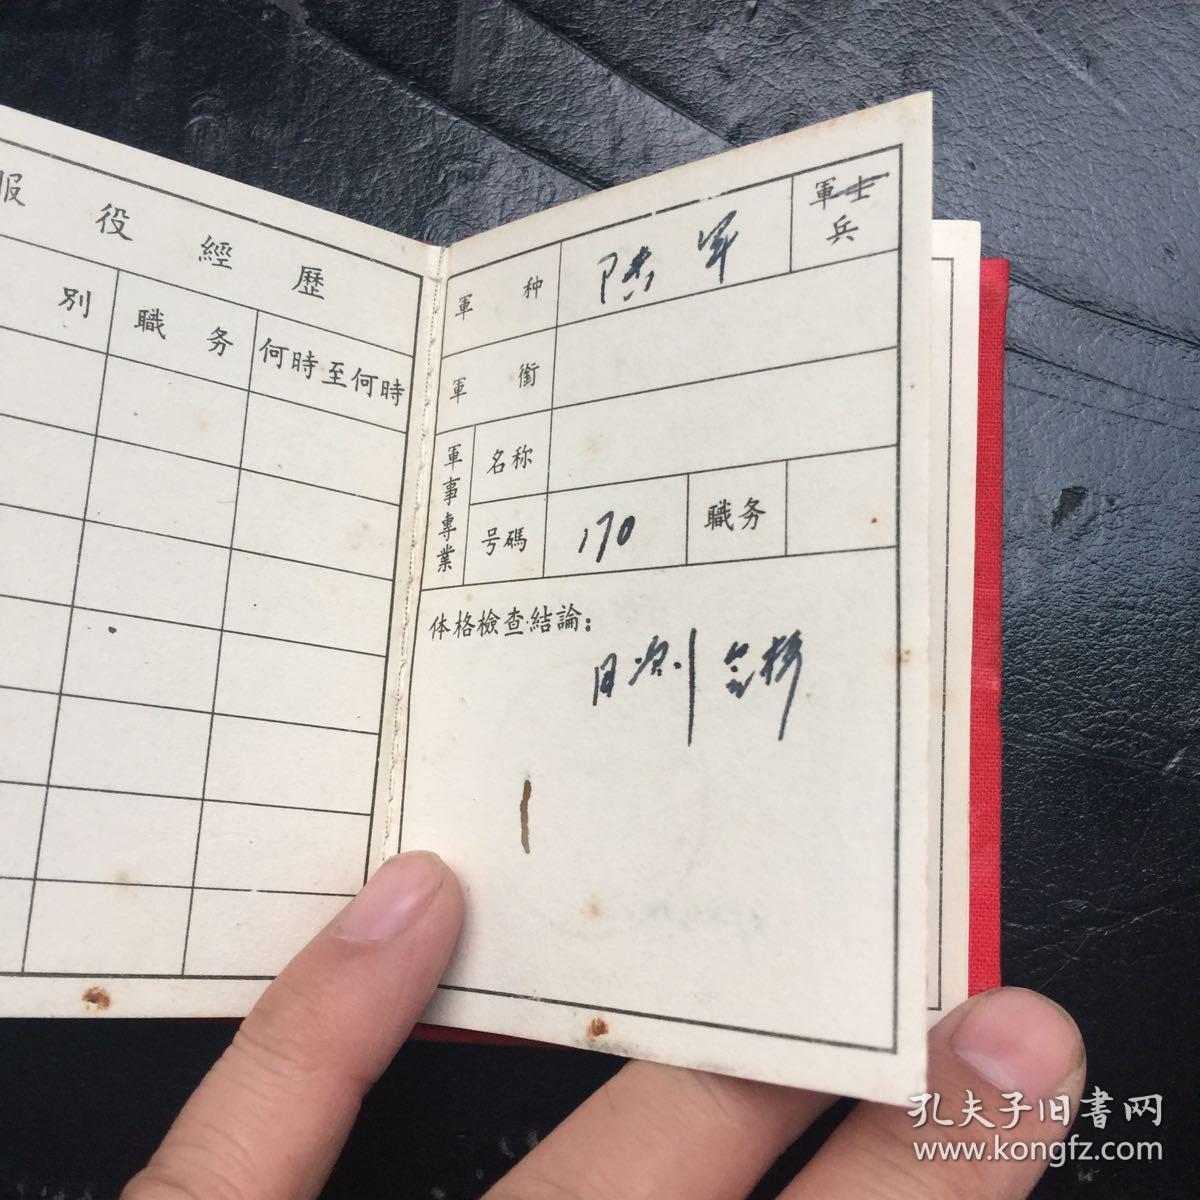 服役經歷
別 職务 何時至何時
軍种 陆军 軍士兵
軍銜
軍事專業 名称
号碼 170 職务
体格檢查結論:
目測合格
孔夫子旧書网
www.kongfz.com